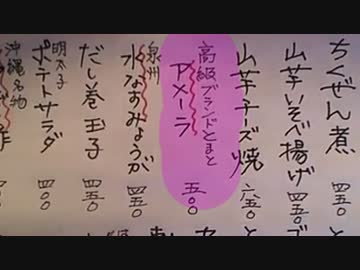 ちくぜん煮
山芋いそべ揚げ 四五〇
山芋チーズ焼 六五〇
高級ブランドとまと
アメーラ 五〇〇
泉州
水なすみょうが 四五〇
だし巻玉子 四五〇
明太子
ポテトサラダ 四〇〇
沖縄名物